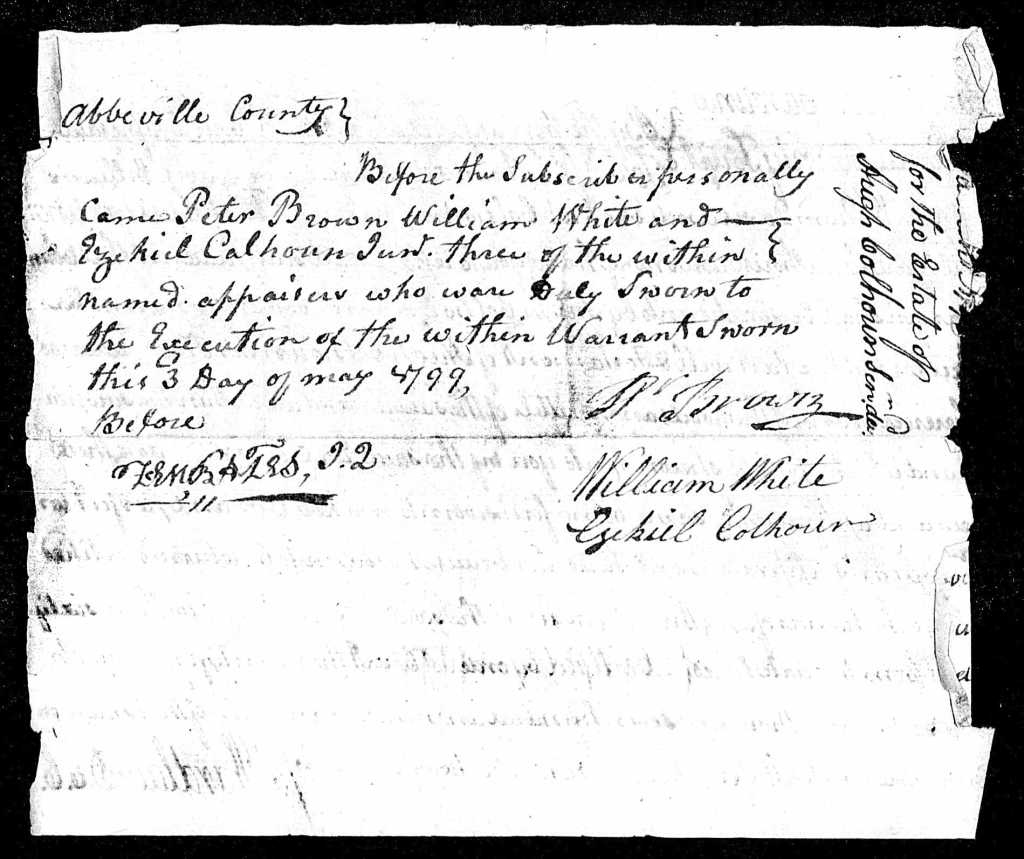 Abbeville County}
Before the Subscriber personally
Came Peter Brown William White and
Ezekiel Calhoun Junr. three of the within
named appaisers who ware Duly Sworn to
the Execution of the within Warrant Sworn
this 3 Day of may 1799,
Before
Pr. Brown
William White
Ezekiel Colhoun
for the Estate of
Hugh Colhoun Sen.